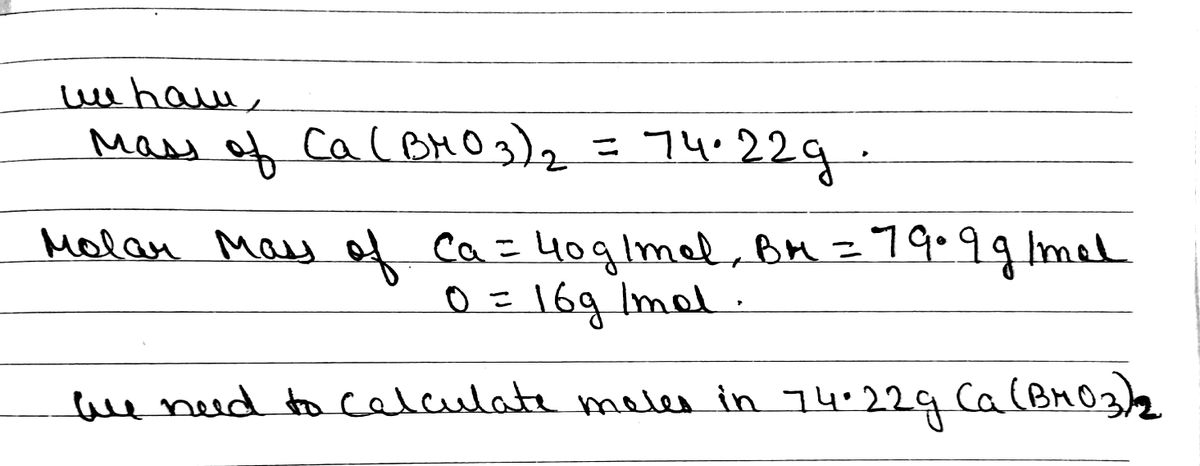 we have,
Mass of Ca(BrO3)2 = 74.22g.
Molar Mass of Ca = 40g/mol, Br = 79.9g/mol
O = 16g/mol.
We need to calculate moles in 74.22g Ca(BrO3)2